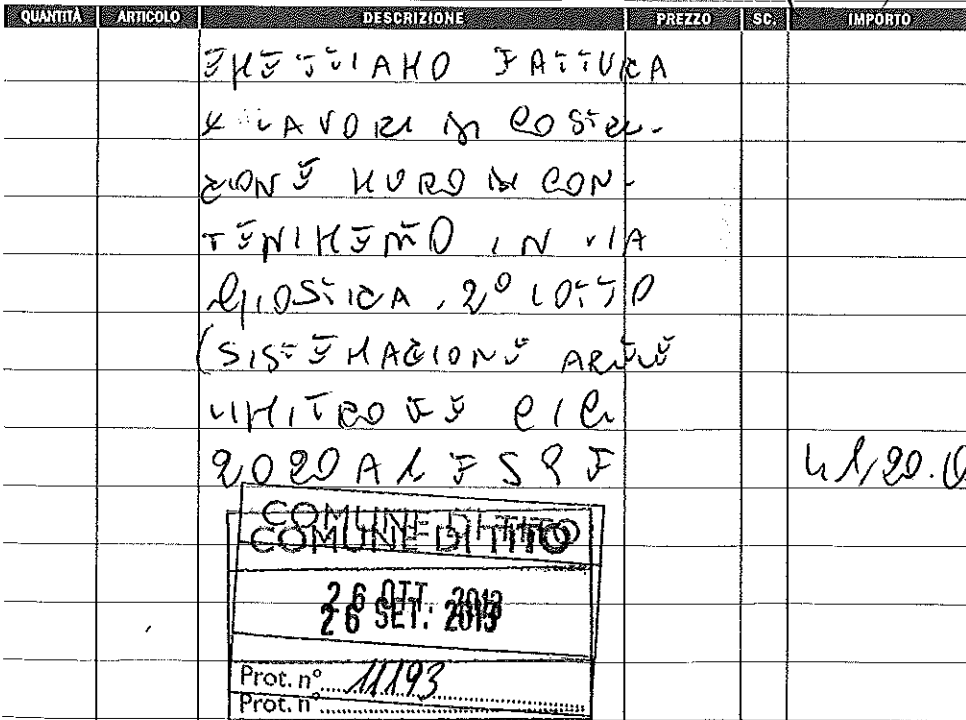 QUANTITÀ ARTICOLO DESCRIZIONE PREZZO SC. IMPORTO
EMETTIAMO FATTURA
X LAVORI DI COSTRU-
ZIONE MURO DI CON-
TENIMENTO IN VIA
2° LOTTO
(SISTEMAZIONE AREE
LIMITROFE CIG
2020A1F59F
COMUNE DI TITO
COMUNE DI TITO
26 OTT. 2013
26 SET. 2013
Prot. n° 11193
Prot. n°